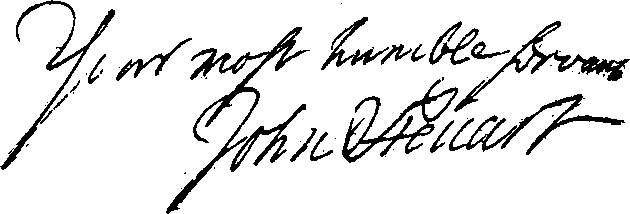 Your most humble Servant
John Steuart